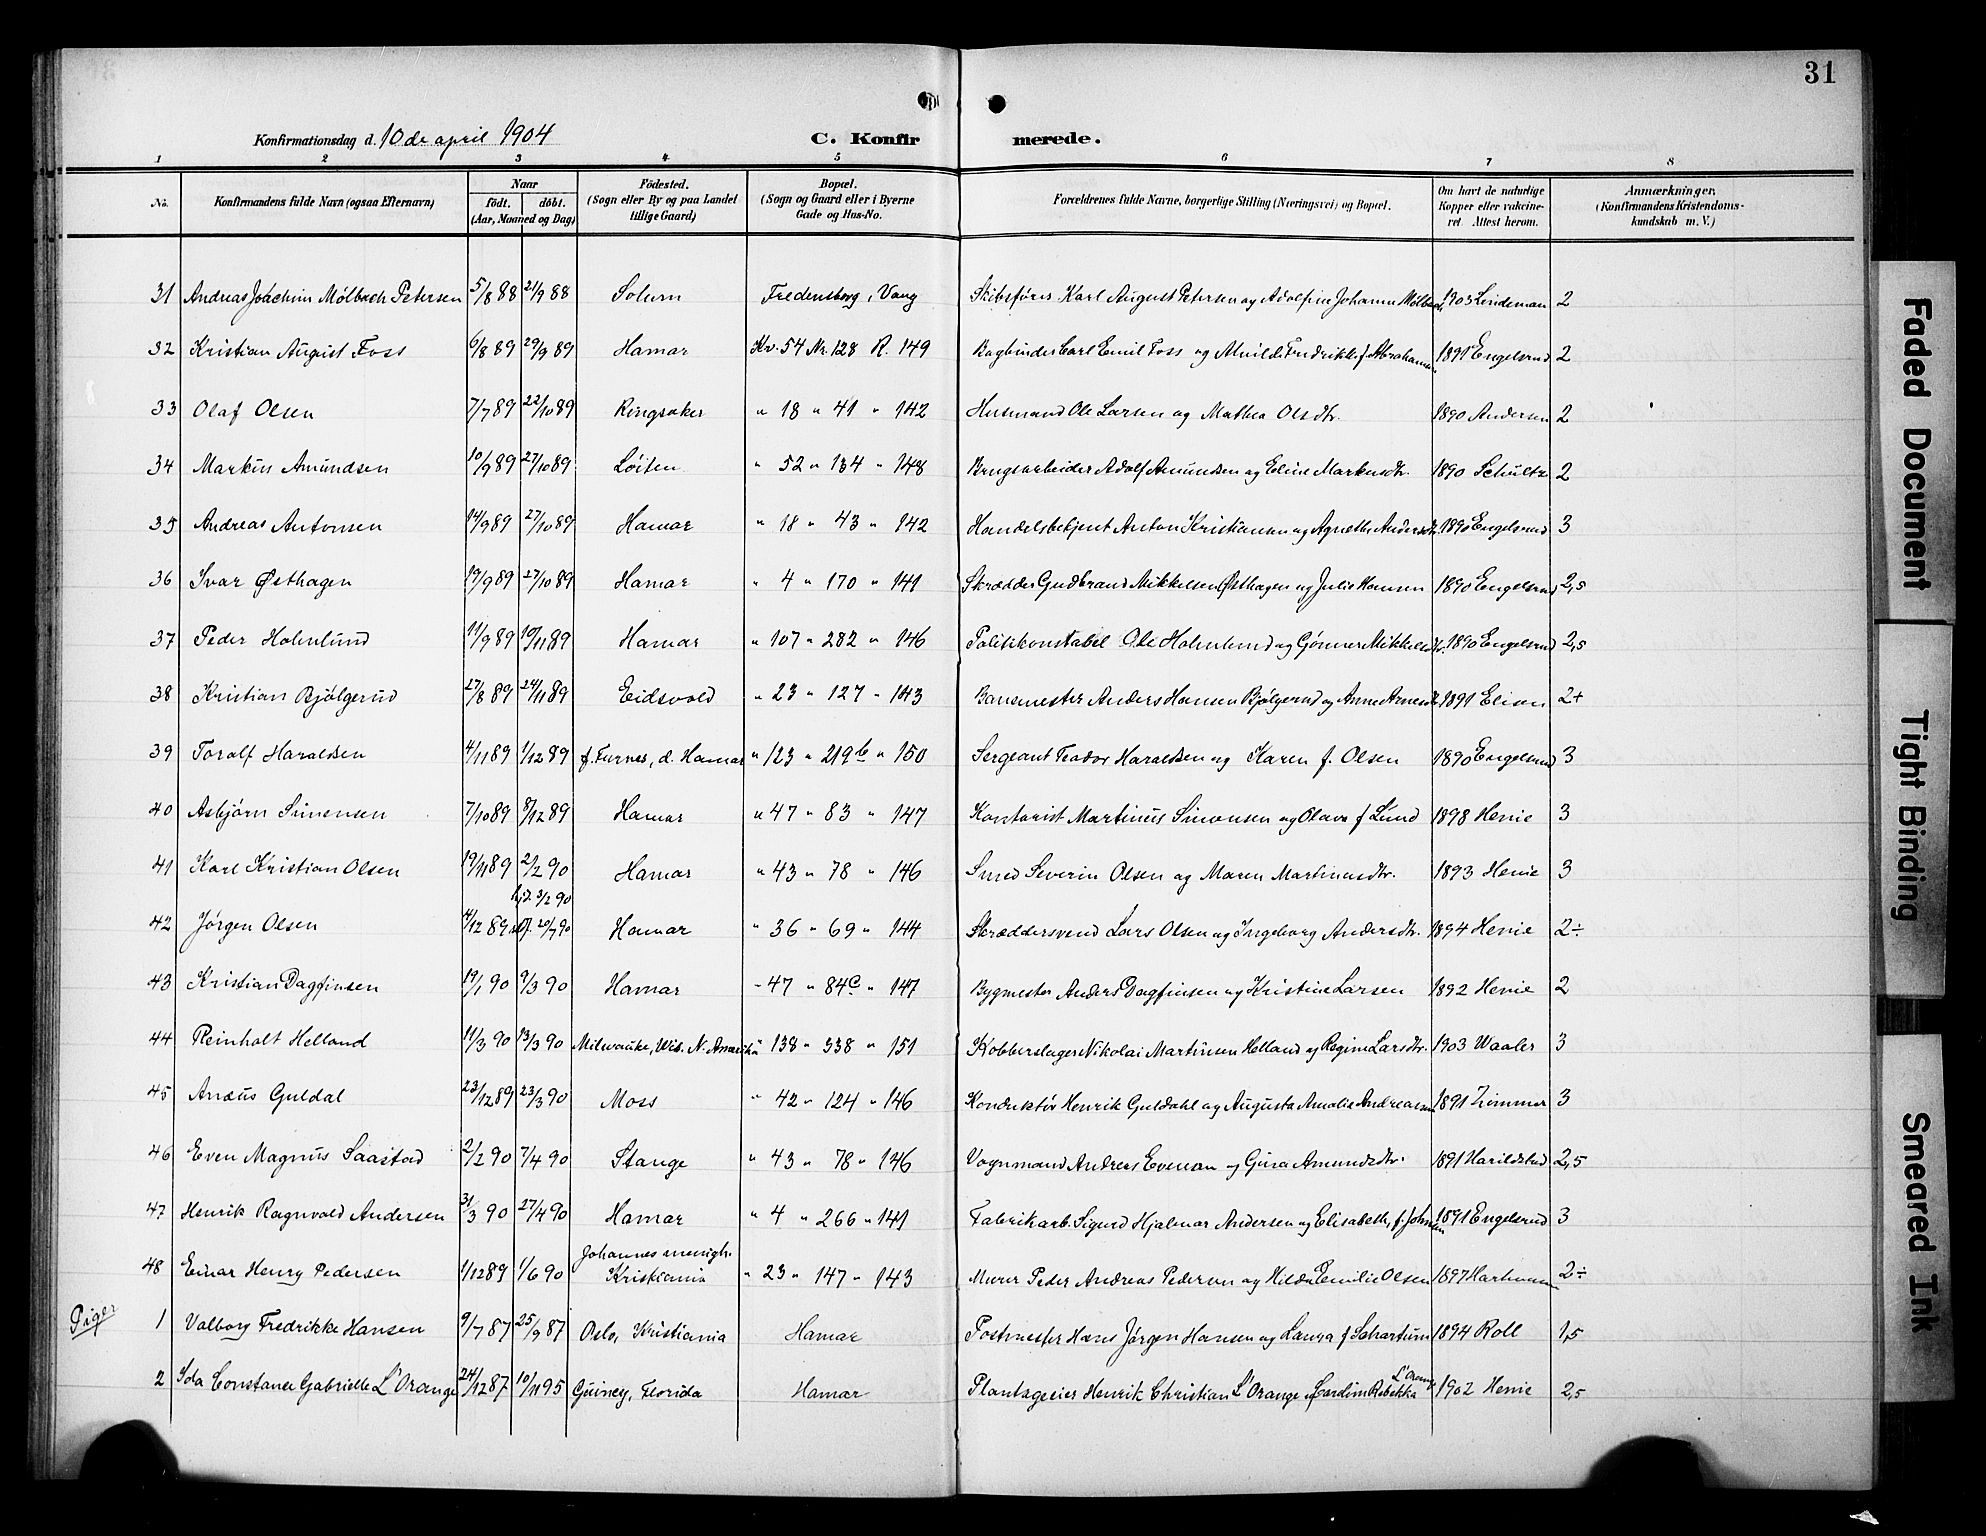 31
Konfirmationsdag d. 10de april 1904
C. Konfirmerede.
1 2 3 4 5 6 7 8
No. | Konfirmandens fulde Navn (ogsaa Efternavn) | Naar født. døbt. (Aar, Maaned og Dag) | Fødested. (Sogn eller By og paa Landet tillige Gaard) | Bopæl. (Sogn og Gaard eller i Byerne Gade og Hus-No. | Forældrenes fulde Navne, borgerlige Stilling (Næringsvei) og Bopæl. | Om havt de naturlige Kopper eller vakcineret. Attest herom. | Anmærkninger. (Konfirmandens Kristendomskundskab m. V.)
31 Andreas Joachim Mølbach Petersen 5/8 88 21/9 88 Solum Fredensborg, Vang Skibsfører Karl August Petersen og Adolfine Johanne Mølbach 1903 Lindeman 2
32 Kristian August Foss 6/8 89 29/9 89 Hamar Kv. 54 Nr. 128 R. 149 Bogbinder Carl Emil Foss og Alvilde Fredrikke f. Abrahamsen 1891 Engelsrud 2
33 Olaf Olsen 7/7 89 22/10 89 Ringsaker " 18 " 41 " 142 Husmand Ole Larsen og Mathea Olsdtr. 1890 Andersen 2
34 Markus Amundsen 10/9 89 27/10 89 Løiten " 52 " 134 " 148 Brugsarbeider Adolf Amundsen og Eline Markusdtr. 1890 Schultz 2
35 Andreas Antonsen 14/9 89 27/10 89 Hamar " 18 " 43 " 142 Handelsbetjent Anton Kristiansen og Agnethe Andersdtr. 1890 Engelsrud 3
36 Ivar Østhagen 19/9 89 27/10 89 Hamar " 4 " 170 " 141 Skrædder Gudbrand Mikkelsen Østhagen og Julie Hansen 1890 Engelsrud 2,5
37 Peder Holmlund 11/9 89 10/11 89 Hamar " 107 " 282 " 146 Politikonstabel Ole Holmlund og Gønner Mikkelsdtr. 1890 Engelsrud 2,5
38 Kristian Bjølgerud 27/8 89 24/11 89 Eidsvold " 23 " 127 " 143 Banemester Anders Hansen Bjølgerud og Anne Arnesdtr. 1891 Elisen 2+
39 Toralf Haraldsen 4/11 89 1/12 89 f. Furnes, d. Hamar " 123 " 219b " 150 Sergeant Teodor Haraldsen og Karen f. Olsen 1890 Engelsrud 3
40 Asbjørn Simensen 7/10 89 8/12 89 Hamar " 47 " 83 " 147 Kontorist Martinus Simensen og Olava f Lund 1898 Henie 3
41 Karl Kristian Olsen 19/11 89 2/2 90 Hamar " 43 " 78 " 146 Smed Severin Olsen og Maren Martinusdtr. 1893 Henie 3
42 Jørgen Olsen 4/12 89 hjd. 3/2 90 stf. 20/7 90 Hamar " 36 " 69 " 144 Skræddersvend Lars Olsen og Ingeborg Andersdtr. 1894 Henie 2÷
43 Kristian Dagfinsen 19/1 90 9/3 90 Hamar " 47 " 84c " 147 Bygmester Anders Dagfinsen og Kristine Larsen 1892 Henie 2
44 Reinholt Helland 11/3 90 13/3 90 Milwauke, Wis. N. Amerika " 138 " 338 " 151 Kobberslager Nikolai Martinsen Helland og Regine Larsdtr. 1903 Waaler 3
45 Anæus Guldal 23/12 89 23/3 90 Moss " 42 " 124 " 146 Konduktør Henrik Guldahl og Augusta Amalie Andreassen 1891 Zimmer 3
46 Even Magnus Saastad 2/2 90 7/4 90 Stange " 43 " 78 " 146 Vognmand Andreas Evensen og Gina Amundsdtr. 1891 Harildstad 2,5
47 Henrik Ragnvald Andersen 31/3 90 27/4 90 Hamar " 4 " 266 " 141 Fabrikarb. Sigurd Hjalmar Andersen og Elisabeth, f. Johnsen 1891 Engelsrud 3
48 Einar Henry Pedersen 1/12 89 1/6 90 Johannes menigh. Kristiania " 23 " 147 " 143 Murer Peder Andreas Pedersen og Hilda Emilie Olsen 1897 Hartmann 2÷
Piger 1 Valborg Fredrikke Hansen 9/7 87 25/9 87 Oslo, Kristiania Hamar Postmester Hans Jørgen Hansen og Laura f Schartum 1894 Roll 1,5
2 Ida Constance Gabrielle L'Orange 24/12 87 10/11 95 Guiney, Florida Hamar Plantageeier Henrik Christian L'Orange og Cardine Rebekka L'Orange 1902 Henie 2,5
Faded Document
Tight Binding
Smeared Ink